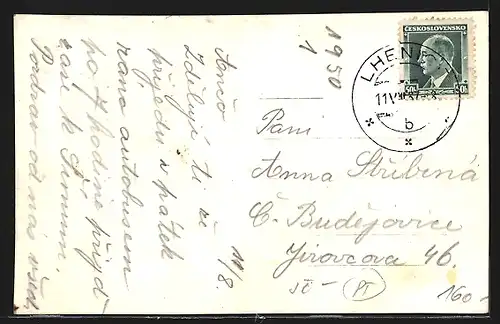 Ančo
Zděluji ti že
přijedu v pátek
ráno autobusem
po 7 hodině přijď
zase k Šimum.
Pozdrav od nás všech
11/8.
1950
1
ČESKOSLOVENSKO
50h
LHEN
11.V
b
Paní
Anna Stříbrná
Č. Budějovice
Jírovcova 46.
160.-